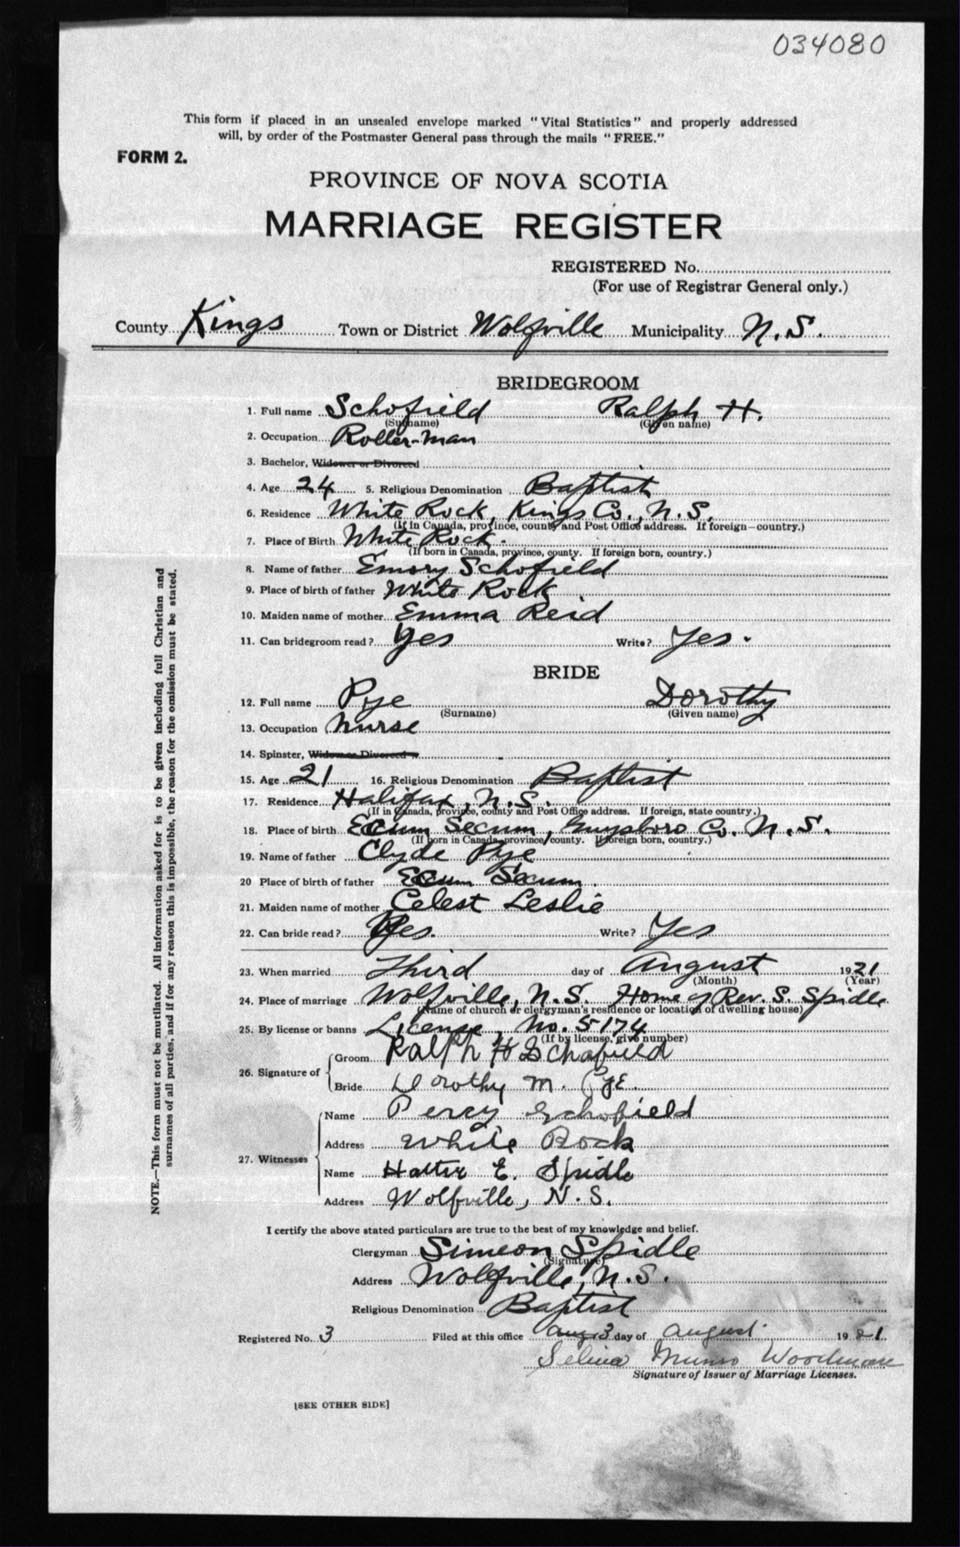 034080
This form if placed in an unsealed envelope marked "Vital Statistics" and properly addressed
will, by order of the Postmaster General pass through the mails "FREE."
FORM 2.
PROVINCE OF NOVA SCOTIA
MARRIAGE REGISTER
REGISTERED No.
(For use of Registrar General only.)
County Kings Town or District Wolfville Municipality N.S.
BRIDEGROOM
1. Full name Schofield Ralph H.
(Surname) (Given name)
2. Occupation Roller-man
3. Bachelor, Widower or Divorced
4. Age 24 5. Religious Denomination Baptist
6. Residence White Rock, Kings Co., N.S.
(If in Canada, province, county and Post Office address. If foreign—country.)
7. Place of Birth White Rock.
(If born in Canada, province, county. If foreign born, country.)
8. Name of father Emory Schofield
9. Place of birth of father White Rock
10. Maiden name of mother Emma Reid
11. Can bridegroom read? Yes Write? Yes.
BRIDE
12. Full name Pye Dorothy
(Surname) (Given name)
13. Occupation Nurse
14. Spinster, Widow or Divorced
15. Age 21 16. Religious Denomination Baptist
17. Residence Halifax, N.S.
(If in Canada, province, county and Post Office address. If foreign, state country.)
18. Place of birth Ecum Secum, Guysboro Co. N.S.
(If born in Canada, province, county. If foreign born, country.)
19. Name of father Clyde Pye
20 Place of birth of father Ecum Secum
21. Maiden name of mother Celest Leslie
22. Can bride read? Yes. Write? Yes
23. When married Third day of August 1921
(Month) (Year)
24. Place of marriage Wolfville, N.S. Home of Rev. S. Spidle
(Name of church or clergyman's residence or location of dwelling house)
25. By license or banns License, No. 5174
(If by license, give number)
26. Signature of Groom Ralph H Schofield
Bride Dorothy M. Pye
27. Witnesses Name Percy Schofield
Address White Rock
Name E. Spidle
Address Wolfville, N.S.
I certify the above stated particulars are true to the best of my knowledge and belief.
Clergyman Simeon Spidle
(Signature)
Address Wolfville, N.S.
Religious Denomination Baptist
Registered No. 3 Filed at this office 3 day of August 1921
Selina Munro Woodman
Signature of Issuer of Marriage Licenses.
[SEE OTHER SIDE]
NOTE.—This form must not be mutilated. All information asked for is to be given including full Christian and
surnames of all parties, and if for any reason this is impossible, the reason for the omission must be stated.